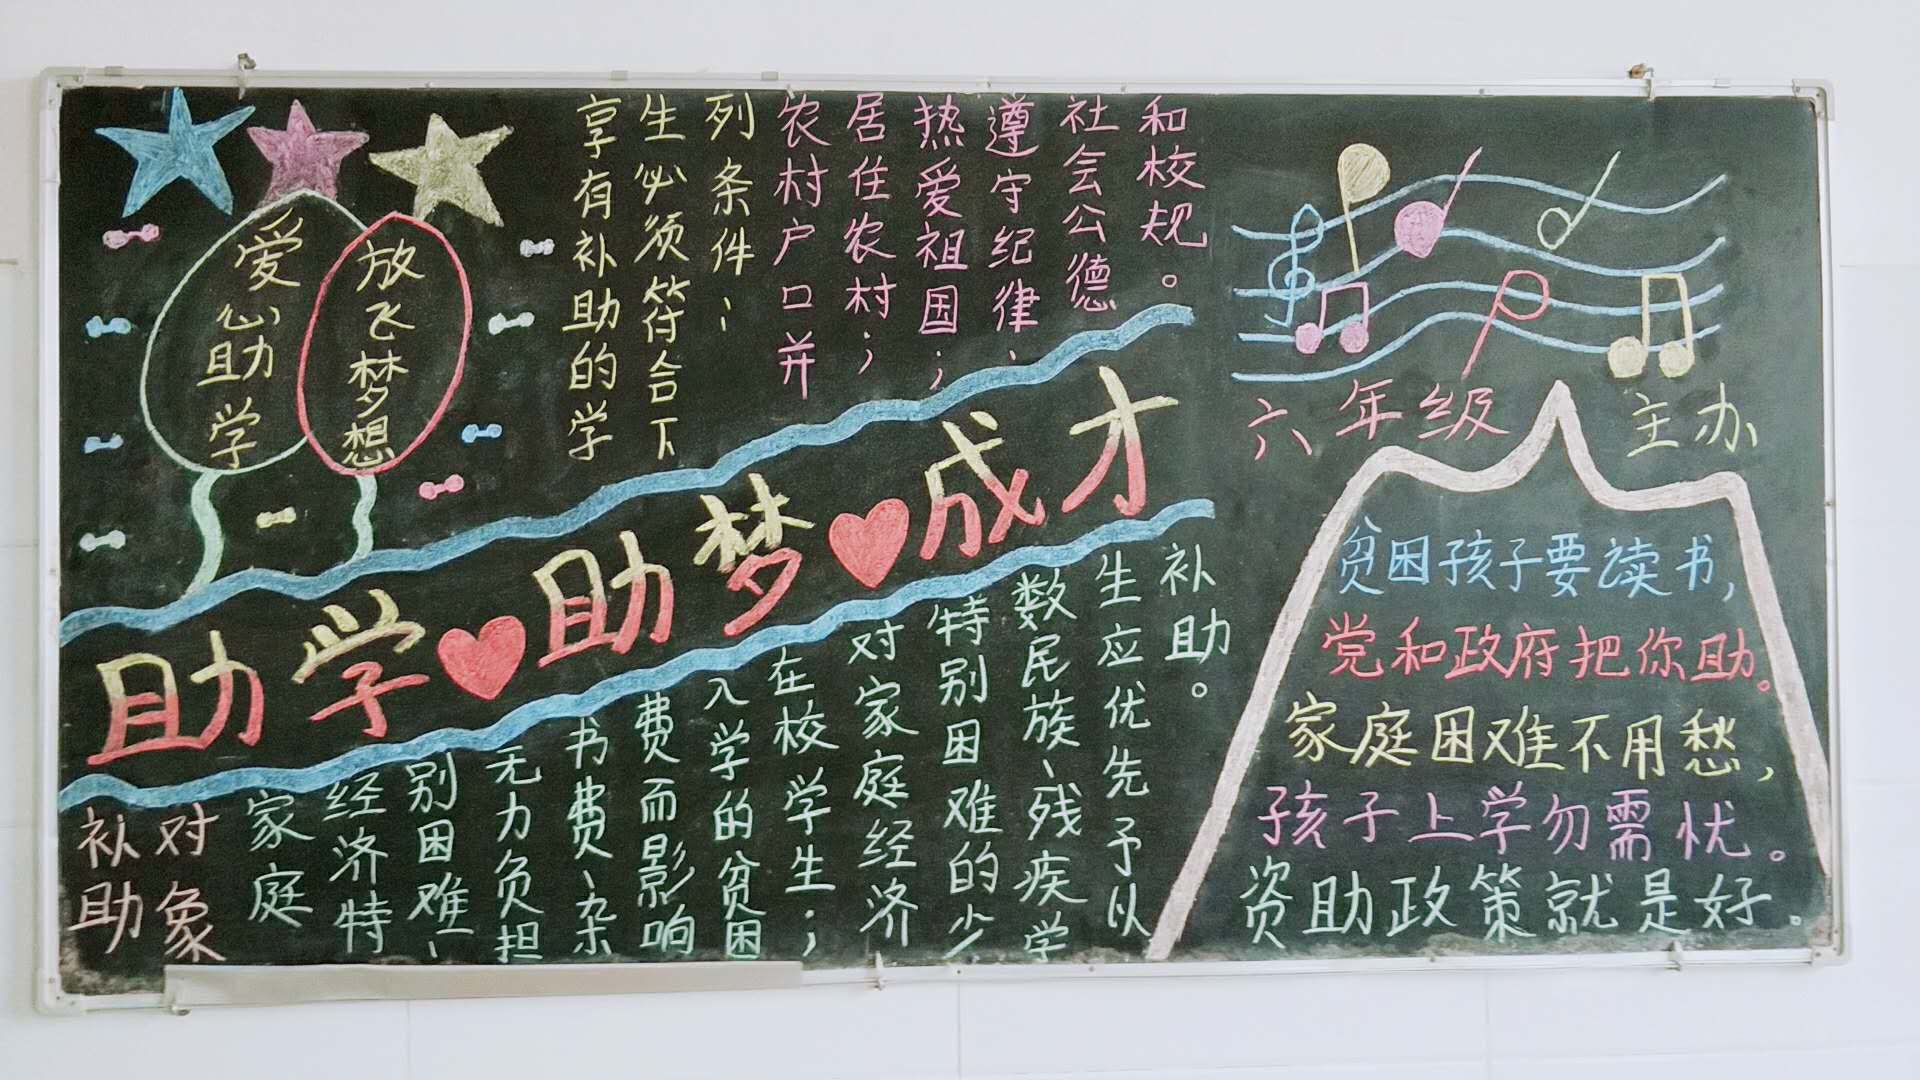 爱心助学
放飞梦想
享有补助的学
生必须符合下
列条件：
农村户口并
居住农村；
热爱祖国；
遵守纪律、
社会公德
和校规。
助学助梦成才
补助
对象
家庭
经济特
别困难、
无力负担
书费、杂
费而影响
入学的贫困
在校学生；
对家庭经济
特别困难的少
数民族、残疾学
生应优先予以
补助。
六年级 主办
贫困孩子要读书，
党和政府把你助。
家庭困难不用愁，
孩子上学勿需忧。
资助政策就是好。